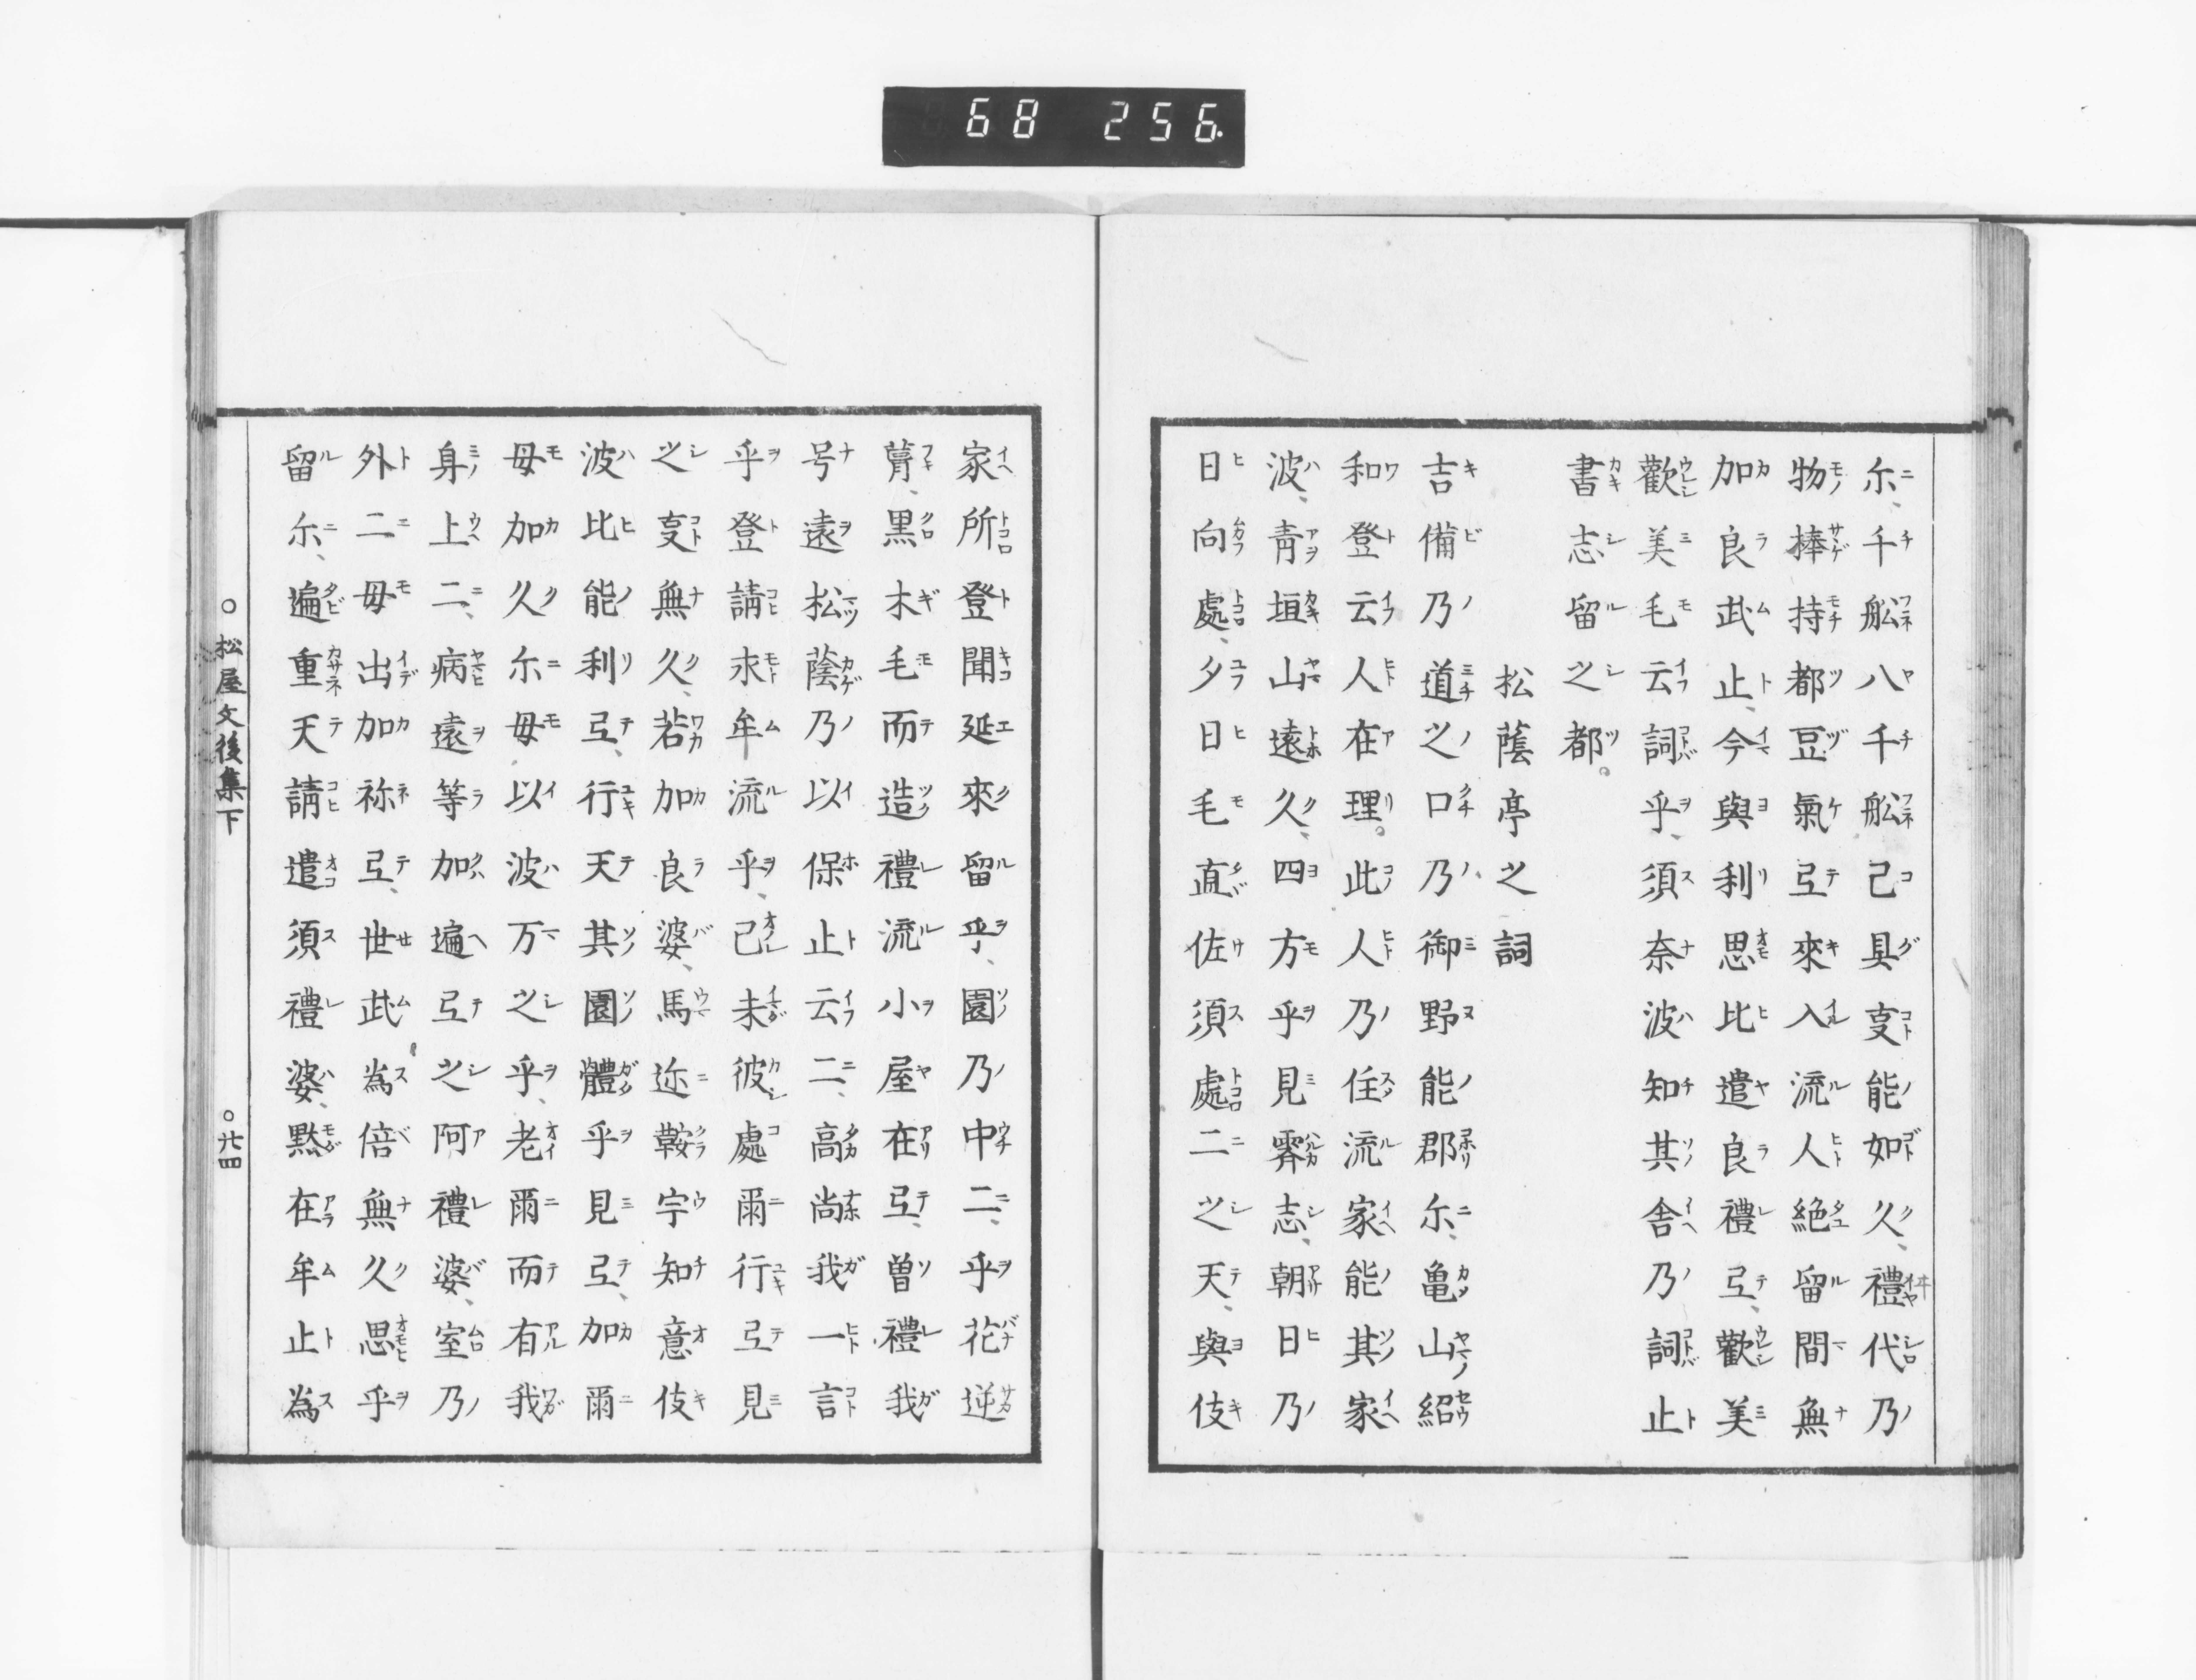 68 256.
尓、千船八千船己具叓能如久、禮代乃
物捧持都豆氣弖來入流人絶留間無
加良武止、今與利思比遣良禮弖、歡美
歡美毛云詞乎、須奈波知其舎乃詞止
書志留之都。
松蔭亭之詞
吉備乃道之口乃、御野能郡尓、亀山紹
和登云人在理。此人乃住流家能其家
波、青垣山遠久、四方乎見霽志、朝日乃
日向處、夕日毛直佐須處二之天、與伎
家所登聞延來留乎、園乃中二、乎花逆
葺、黒木毛而造禮流小屋在弖、曽禮我
号遠松蔭乃以保止云二、高尚我一言
乎登請求牟流乎、己未彼處爾行弖見
之叓無久、若加良婆、馬迩鞍宇知意伎
波比能利弖、行天其園體乎見弖、加爾
毋加久尓毋以波万之乎、老爾而有我
身上二、病遠等加遍弖之阿禮婆、室乃
外二毋出加祢弖、世武為倍無久思乎
留尓、遍重天請遣須禮婆、黙在牟止為
○松屋文後集下
○廿四